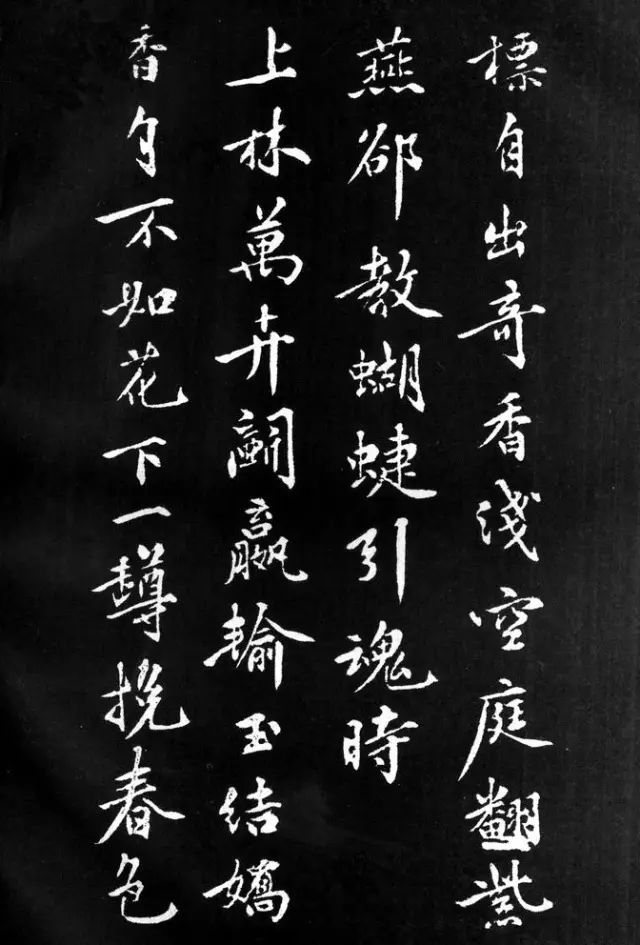 標自出奇香淺空庭翻紫
燕卻教蝴蜨引魂時
上林萬卉鬭贏輸玉結嬌
香自不如花下一罇挽春色